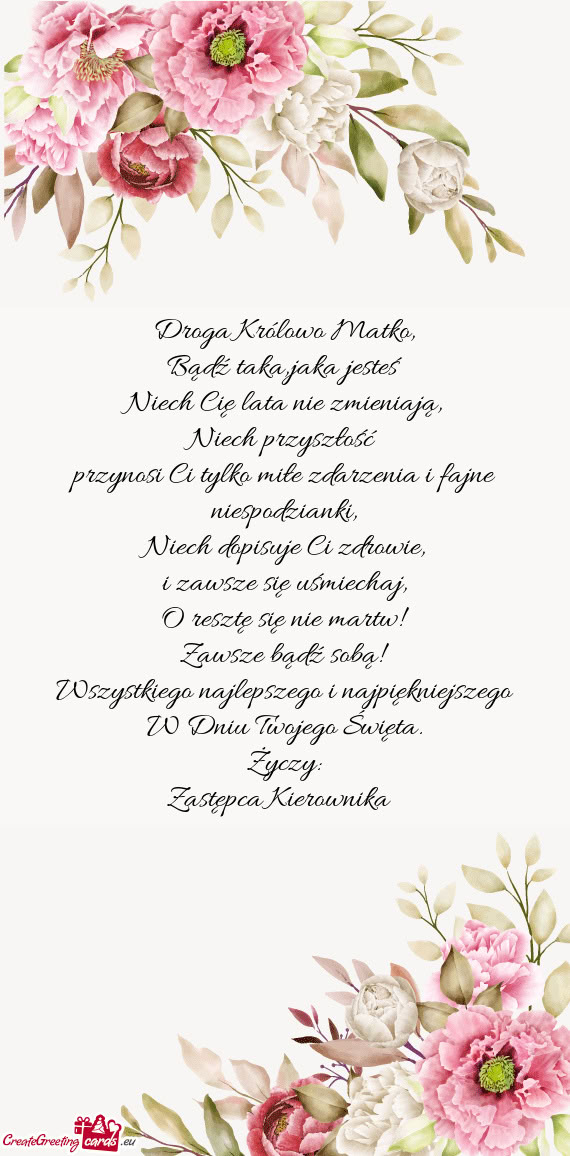 Droga Królowo Matko,
Bądź taka,jaka jesteś
Niech Cię lata nie zmieniają,
Niech przyszłość
przynosi Ci tylko miłe zdarzenia i fajne
niespodzianki,
Niech dopisuje Ci zdrowie,
i zawsze się uśmiechaj,
O resztę się nie martw!
Zawsze bądź sobą!
Wszystkiego najlepszego i najpiękniejszego
W Dniu Twojego Święta.
Życzy:
Zastępca Kierownika
CreateGreeting cards .eu